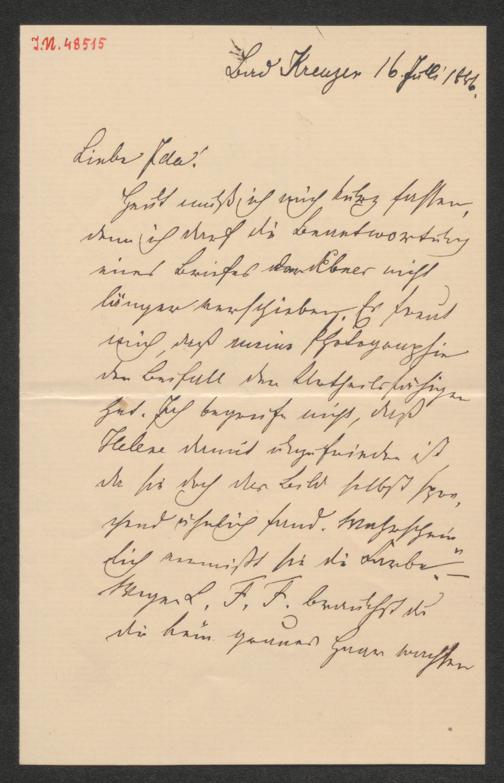 J.N. 48515
Bad Kreuzen 16. Juli 1886.
Liebe Ida!
Heut muß ich mich kurz fassen,
denn ich darf die Beantwortung
eines Briefes der Ebner nicht
länger verschieben. Es freut
mich, daß meine Photographie
den Beifall der Urtheilsfähigen
hat. Ich begreife nicht, daß
Helene damit unzufrieden ist
da sie doch das Bild selbst spre-
chend ähnlich fand. Wahrschein
lich vermißt sie die Farbe. –
Wegen L. F. F. brauchst du
dir kein graues Haar wachsen